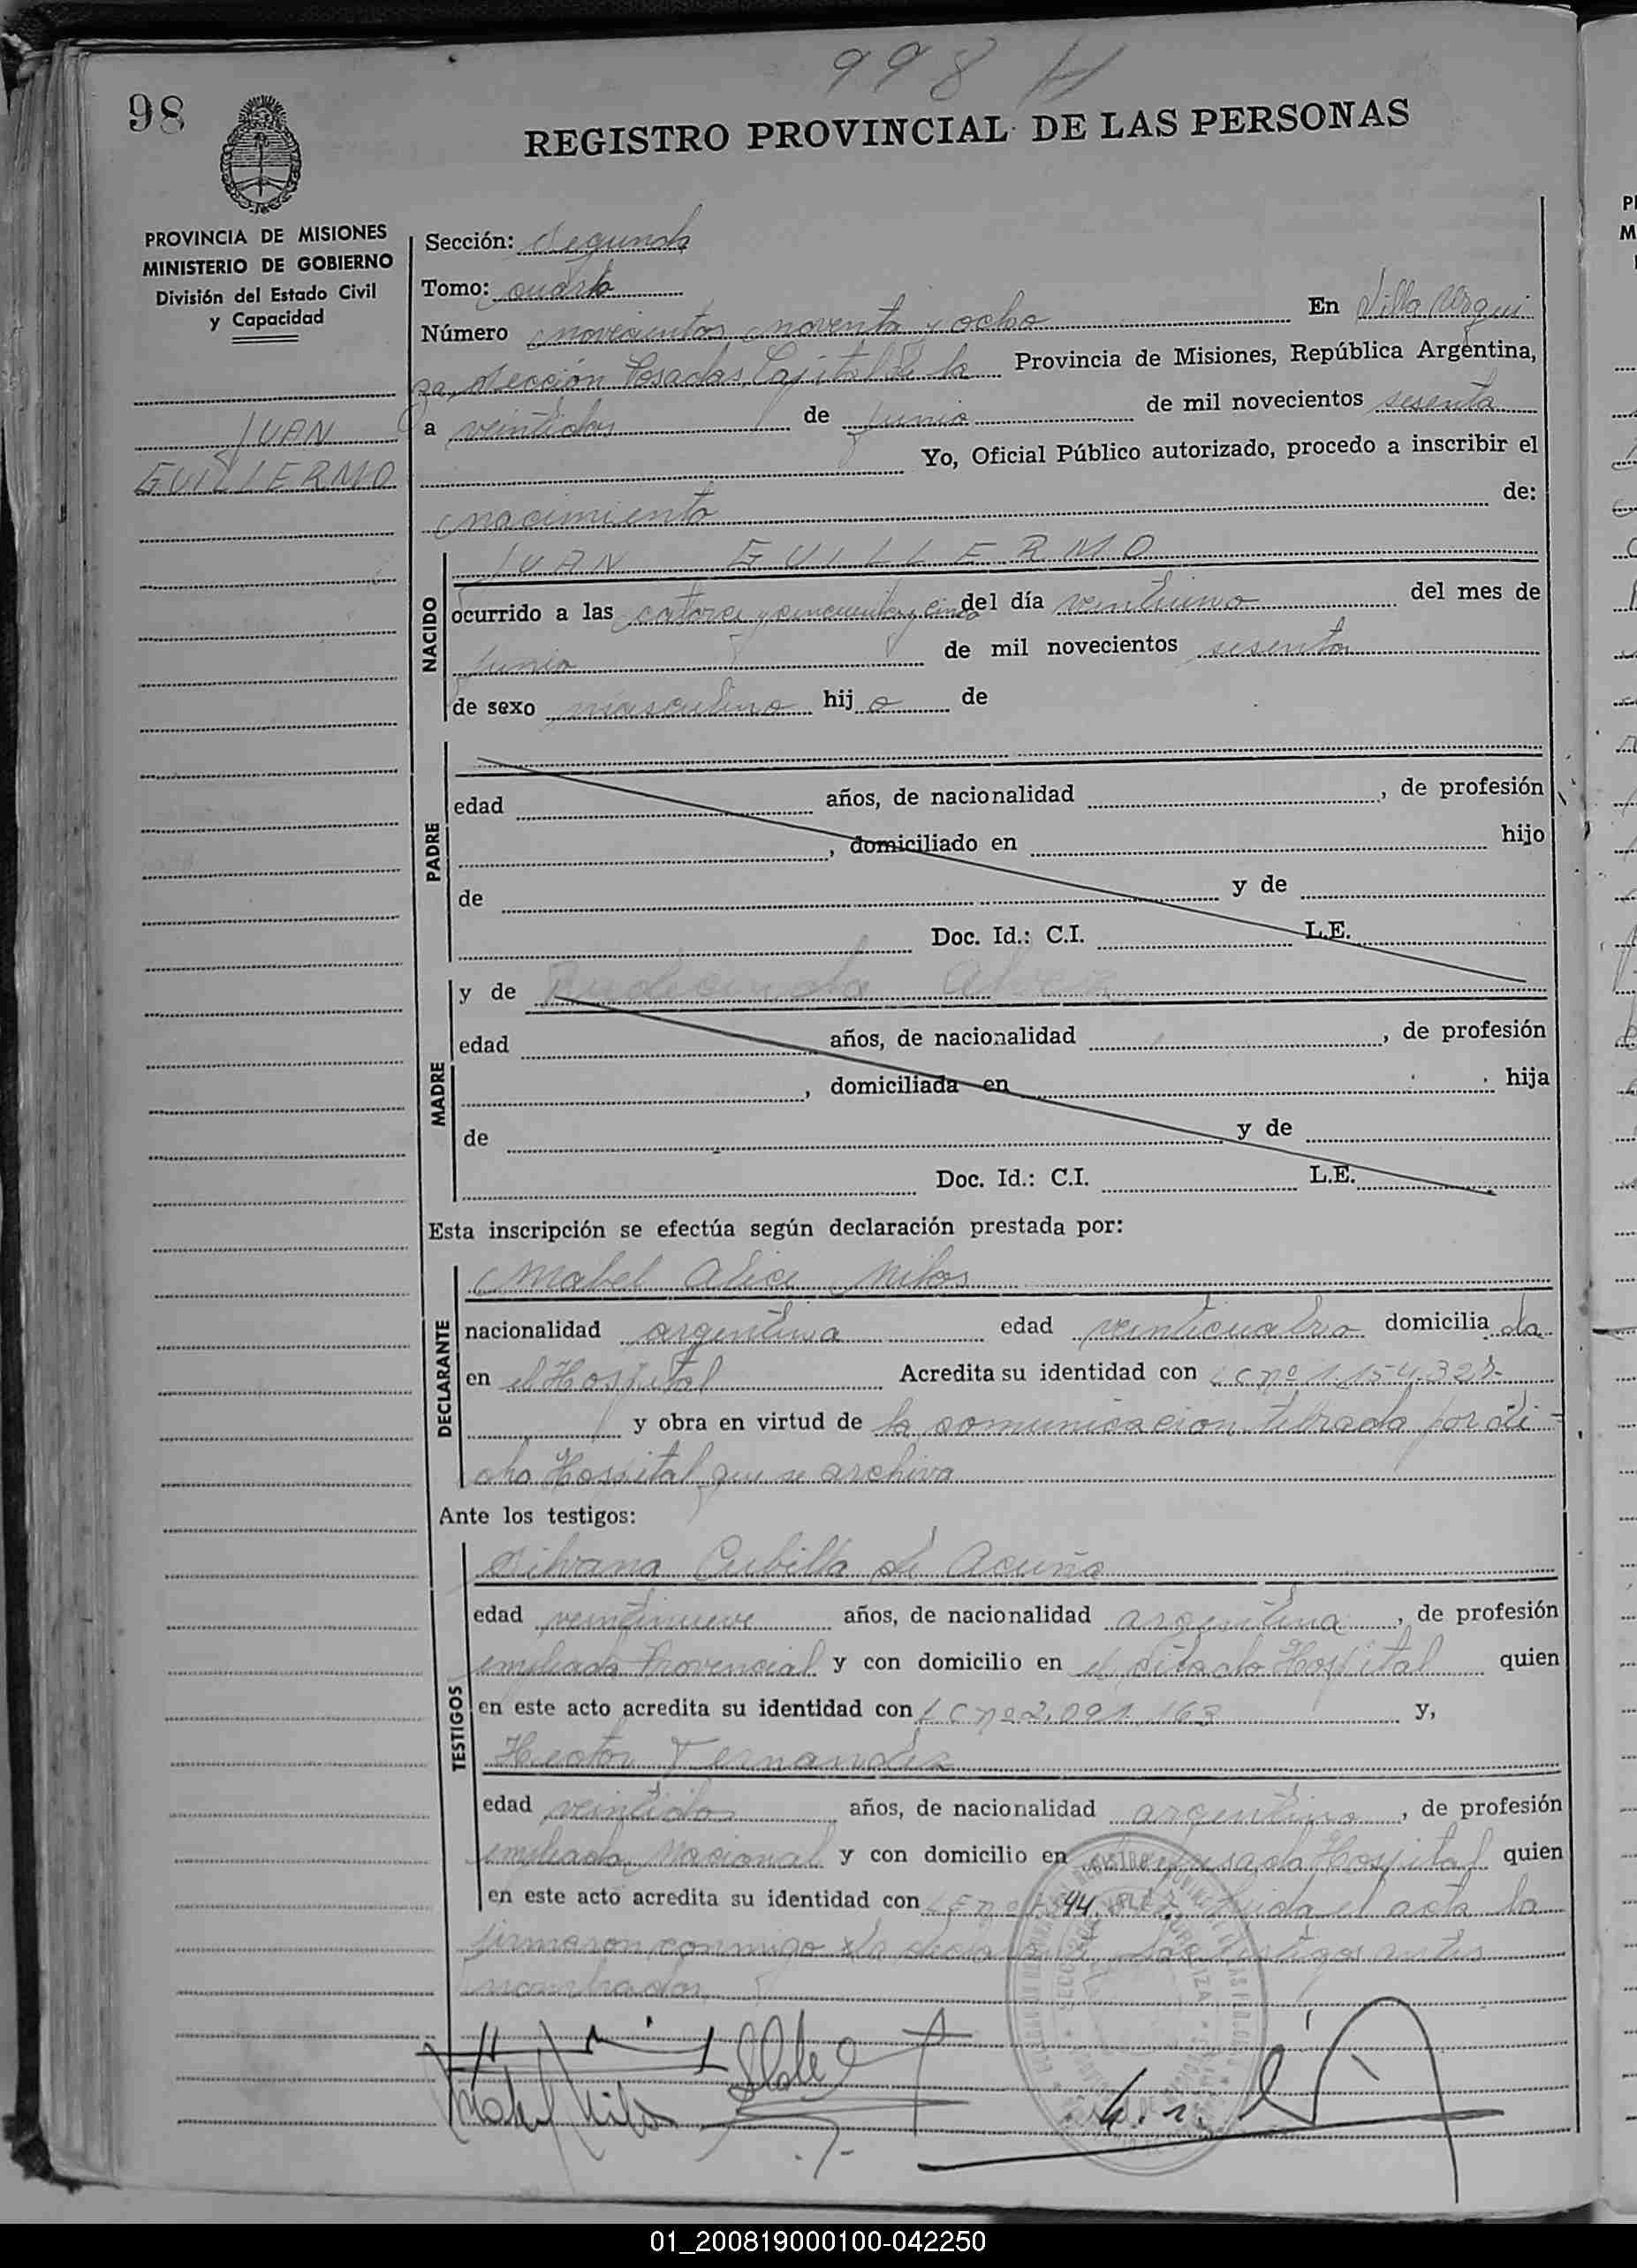 998 H
98
REGISTRO PROVINCIAL DE LAS PERSONAS
PROVINCIA DE MISIONES
MINISTERIO DE GOBIERNO
División del Estado Civil
y Capacidad
JUAN
GUILLERMO
Sección: Segunda
Tomo: cuarto
Número novecientos noventa y ocho En Villa Urqui
za, Sección Posadas, Capital de la Provincia de Misiones, República Argentina,
a veintidos de junio de mil novecientos sesenta
Yo, Oficial Público autorizado, procedo a inscribir el
nacimiento de:
NACIDO
JUAN GUILLERMO
ocurrido a las catorce y cincuenta y cinco del día veintiuno del mes de
junio de mil novecientos sesenta
de sexo masculino hijo de
PADRE
edad años, de nacionalidad , de profesión
, domiciliado en hijo
de y de
Doc. Id.: C.I. L.E.
MADRE
y de
edad años, de nacionalidad , de profesión
, domiciliada en hija
de y de
Doc. Id.: C.I. L.E.
Esta inscripción se efectúa según declaración prestada por:
DECLARANTE
Mabel Alice Milos
nacionalidad argentina edad veinticuatro domiciliada
en el Hospital Acredita su identidad con L C nº
y obra en virtud de la comunicacion librada por di-
cho Hospital que se archiva
Ante los testigos:
TESTIGOS
Silvana Cubilla de Acuña
edad veintinueve años, de nacionalidad argentina, de profesión
empleada Provincial y con domicilio en el citado Hospital quien
en este acto acredita su identidad con L C nº 2.091.163 y,
Hector Fernandez
edad veintidos años, de nacionalidad argentino, de profesión
empleado Nacional y con domicilio en el expresado Hospital quien
en este acto acredita su identidad con L E nº leida el acta la
firmaron conmigo la declarante y los testigos antes
nombrados
01_200819000100-042250